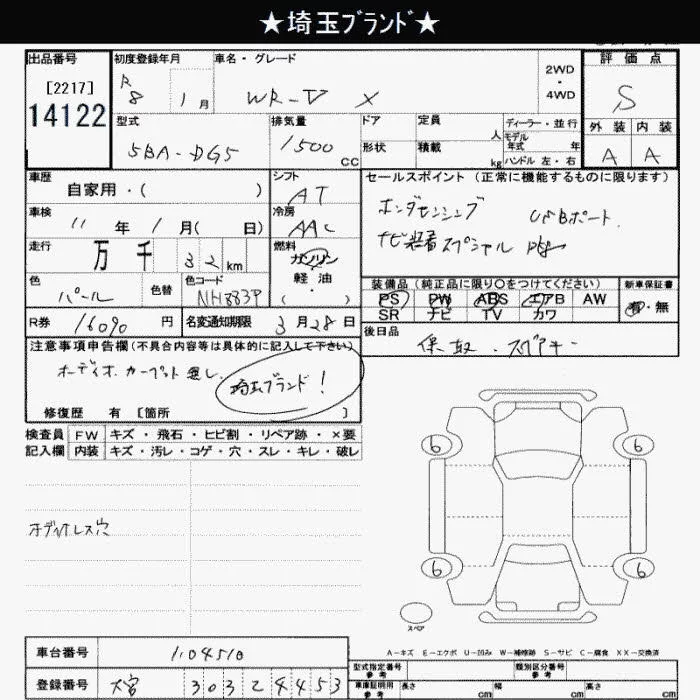 ★埼玉ﾌﾞﾗﾝﾄﾞ★
出品番号
[2217]
14122
初度登録年月
R8 1月
車名・グレード
WR-V X
2WD
・
4WD
評価点
S
外装 内装
A A
型式
5BA-DG5
排気量
1500 CC
ドア
形状
定員 人
積載 kg
ディーラー・並行
モデル年式 年
ハンドル 左・右
車歴
自家用・( )
シフト
AT
車検
11年 1月( 日)
冷房
AAC
走行
万 千 32km
燃料
ガソリン
・
軽油
( )
色
パール
色替
色コード
NH883P
R券 16090 円
名変通知期限 3月28日
セールスポイント(正常に機能するものに限ります)
ホンダセンシング USBポート
ナビ装着スペシャル
装備品(純正品に限り〇をつけてください)
PS PW ABS エアB AW
SR ナビ TV カワ
新車保証書
有・無
後日品
保取.スペアキー
注意事項申告欄(不具合内容等は具体的に記入して下さい)
オーディオ.カーペット無し.
埼玉ブランド!
修復歴 有 [箇所 ]
検査員 FW キズ・飛石・ヒビ割・リペア跡・×要
記入欄 内装 キズ・汚レ・コゲ・穴・スレ・キレ・破レ
オーディオレス穴
6 6
6 6
スペア
A-キズ E-エクボ U-凹み W-補修跡 S-サビ C-腐食 XX-交換済
車台番号 1104510
登録番号 大宮 303 2 4453
型式指定番号 参考
類別区分番号 参考
車庫証明用 参考
長さ cm 幅 cm 高さ cm